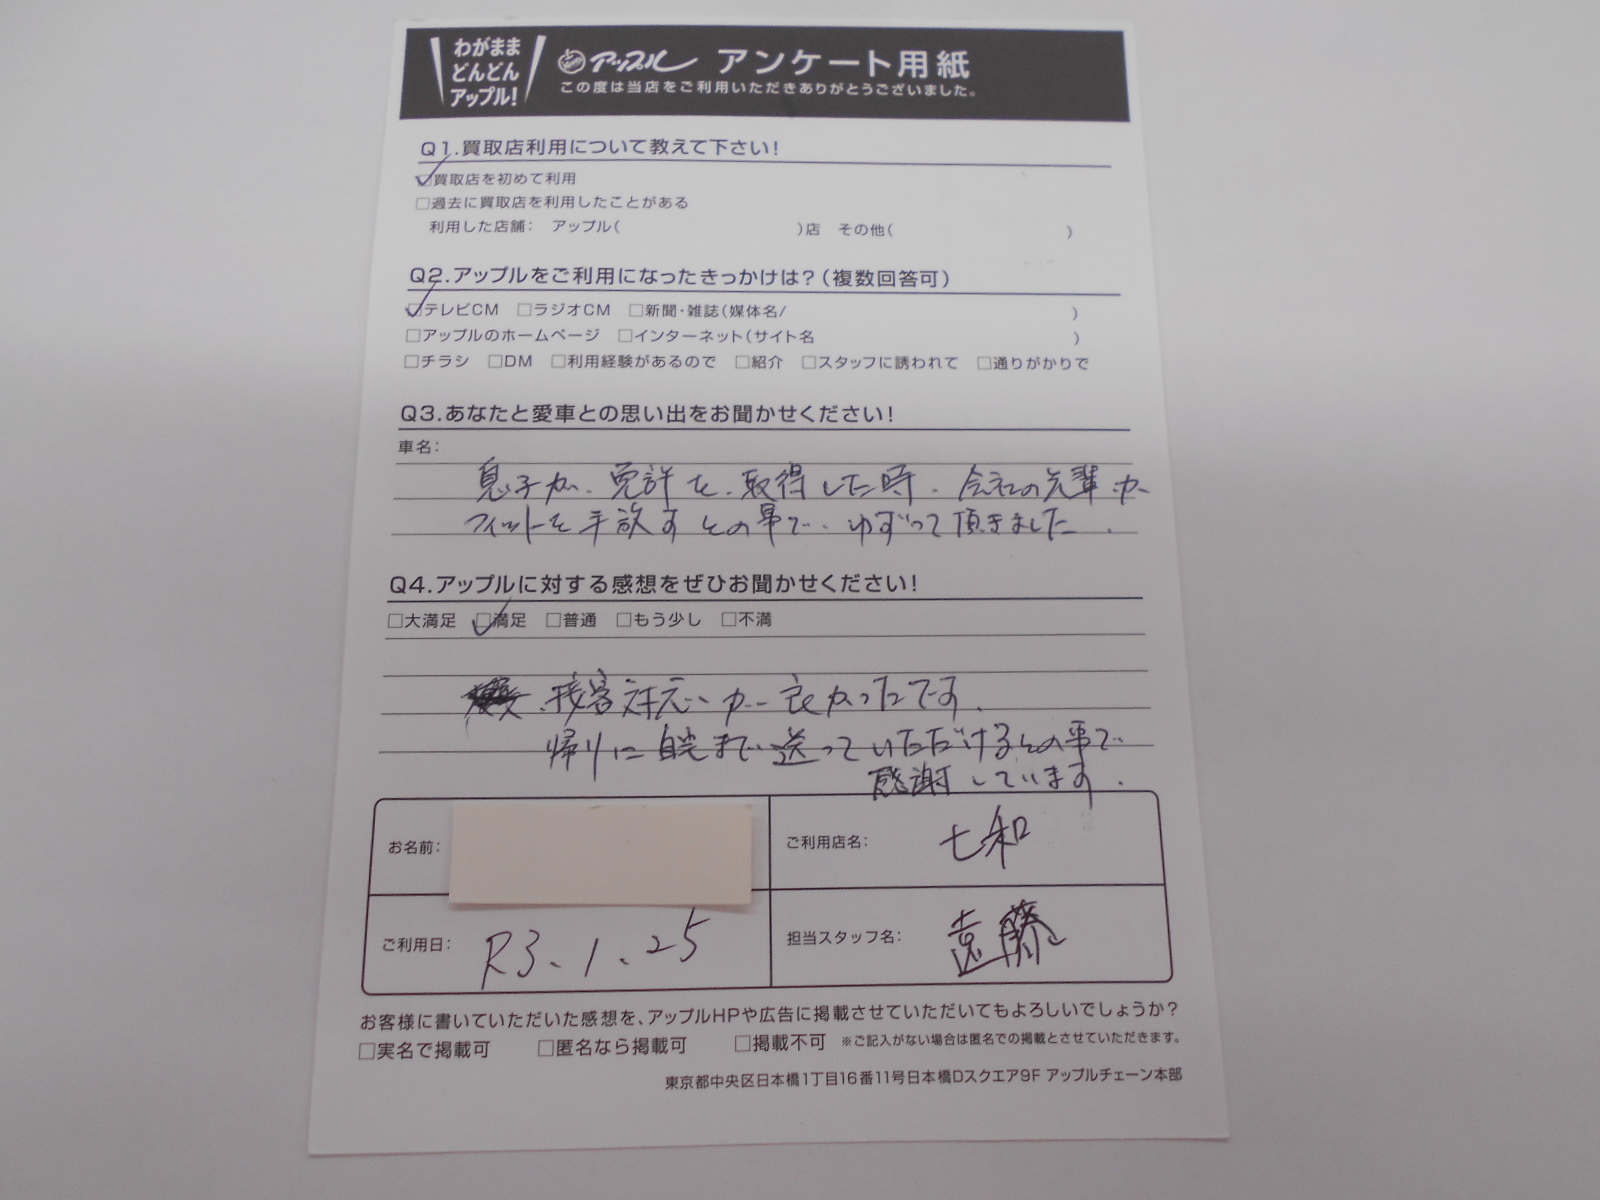 わがまま
どんどん
アップル!
アップル アンケート用紙
この度は当店をご利用いただきありがとうございました。
Q1.買取店利用について教えて下さい!
☑買取店を初めて利用
□過去に買取店を利用したことがある
利用した店舗: アップル( )店 その他( )
Q2.アップルをご利用になったきっかけは?(複数回答可)
☑テレビCM □ラジオCM □新聞・雑誌(媒体名/ )
□アップルのホームページ □インターネット(サイト名 )
□チラシ □DM □利用経験があるので □紹介 □スタッフに誘われて □通りがかりで
Q3.あなたと愛車との思い出をお聞かせください!
車名:
息子が、免許を、取得した時、会社の先輩が
フィットを手放すとの事で、ゆずって頂きました。
Q4.アップルに対する感想をぜひお聞かせください!
□大満足 ☑満足 □普通 □もう少し □不満
接客対応が良かったです。
帰りに自宅まで送っていただけるとの事で
感謝しています。
お名前:
ご利用店名: 七和
ご利用日: R3.1.25
担当スタッフ名: 遠藤
お客様に書いていただいた感想を、アップルHPや広告に掲載させていただいてもよろしいでしょうか?
□実名で掲載可 □匿名なら掲載可 □掲載不可 ※ご記入がない場合は匿名での掲載とさせていただきます。
東京都中央区日本橋1丁目16番11号日本橋Dスクエア9F アップルチェーン本部